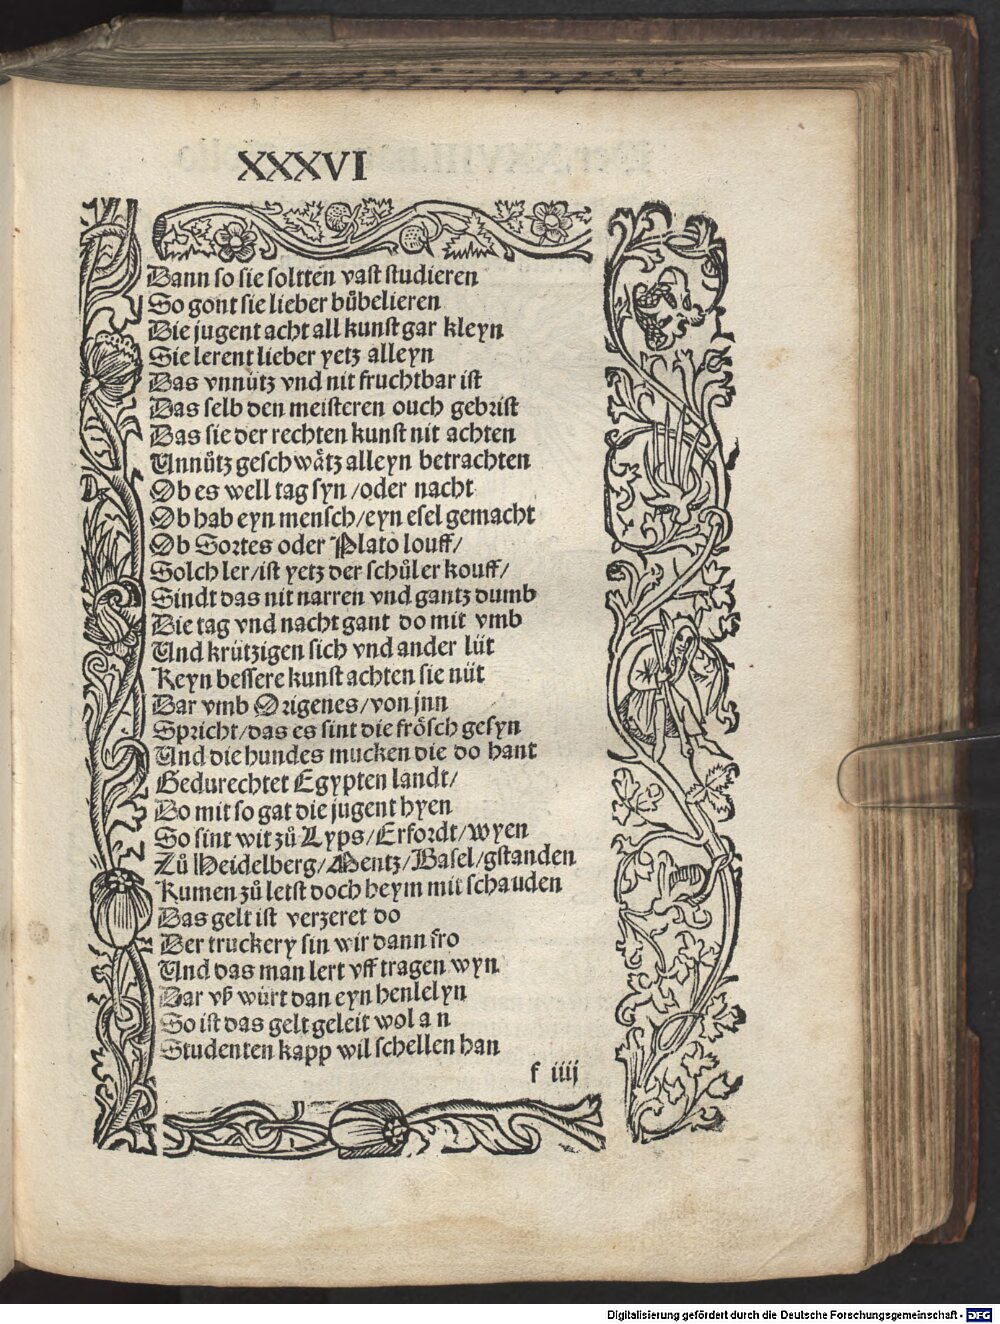 XXXVI
Dann so sie soltten vast studieren
So gont sie lieber bůbelieren
Die jugent acht all kunst gar kleyn
Sie lerent lieber yetz alleyn
Das vnnütz vnd nit fruchtbar ist
Das selb den meisteren ouch gebrist
Das sie der rechten kunst nit achten
Unnütz geschwätz alleyn betrachten
Ob es well tag syn /oder nacht
Ob hab eyn mensch/eyn esel gemacht
Ob Sortes oder Plato louff/
Solch ler/ist yetz der schůler kouff/
Sindt das nit narren vnd gantz dumb
Die tag vnd nacht gant do mit vmb
Und krützigen sich vnd ander lüt
Keyn bessere kunst achten sie nüt
Dar vmb Origenes/von jnn
Spricht/das es sint die frösch gesyn
Und die hundes mucken die do hant
Gedurechtet Egypten landt/
Do mit so gat die jugent hyen
So sint wit zů Lyps/Erfordt/wyen
Zů Heidelberg/Mentz/Basel/gstanden
Kumen zů letst doch heym mit schanden
Das gelt ist verzeret do
Der truckery sin wir dann fro
Und das man lert vff tragen wyn
Dar vß würt dan eyn henselyn
So ist das gelt geleit wol an
Studenten kapp wil schellen han
f iiij
Digitalisierung gefördert durch die Deutsche Forschungsgemeinschaft - DFG